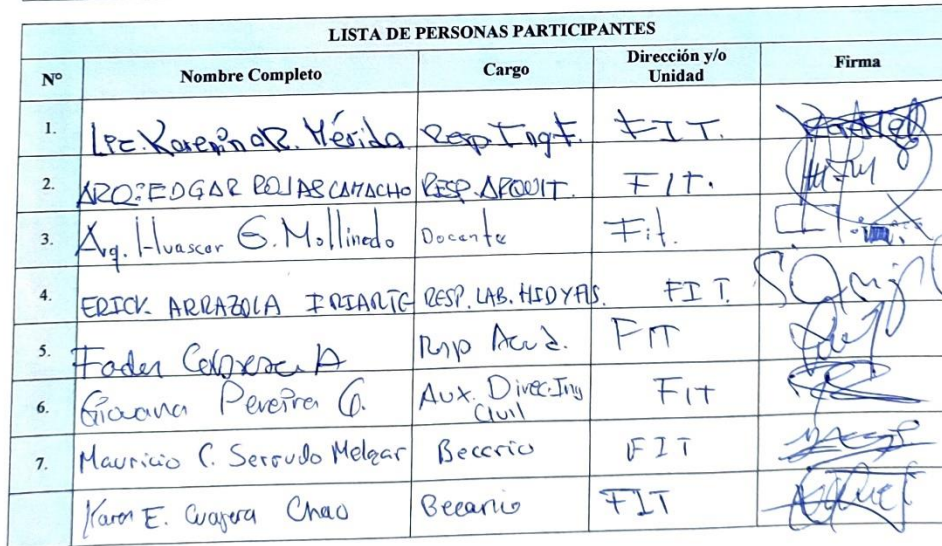 LISTA DE PERSONAS PARTICIPANTES
Nº Nombre Completo Cargo Dirección y/o Unidad Firma
1. Lic. R. Mérida Resp Ing F. FIT.
2. ARQ. EDGAR ROJAS CAMACHO RESP. ARQUIT. FIT.
3. Huascar G. Mollinedo Docente Fit.
4. ERICK ARRAZOLA IRIARTE RESP. LAB. FIT.
5. Acad. FIT
6. Giovana Pereira G. Aux. Direc. Ing Civil FIT
7. Mauricio C. Serrudo Melgar Becario FIT
Karen E. Chao Becario FIT